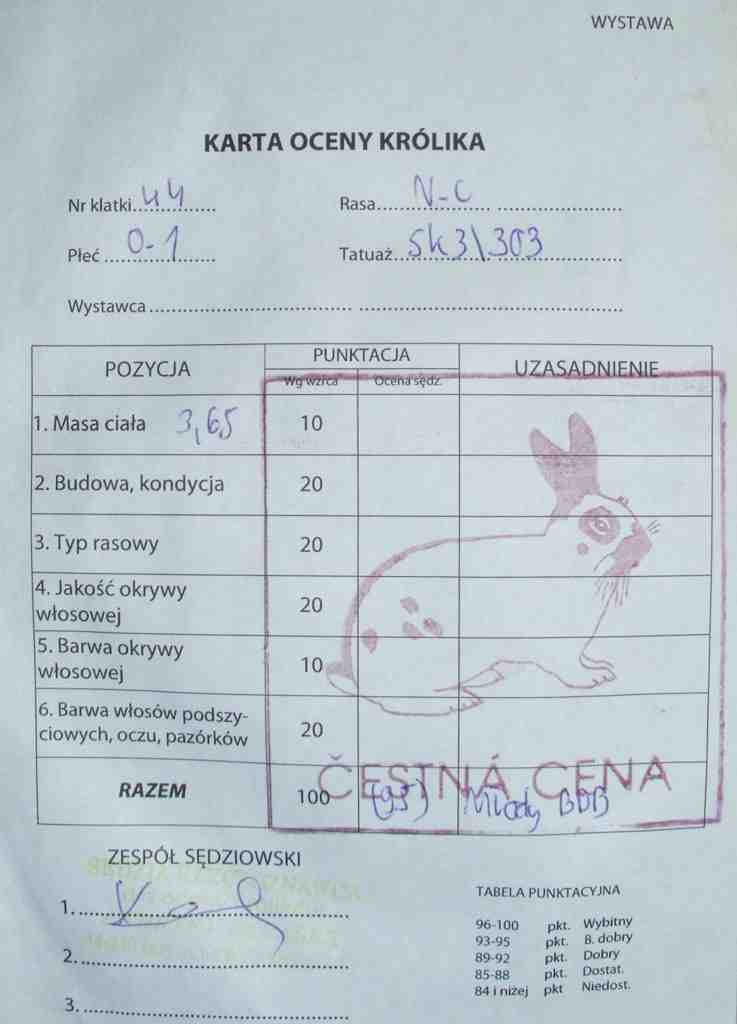 WYSTAWA
KARTA OCENY KRÓLIKA
Nr klatki 44 Rasa N-C
Płeć 0-1 Tatuaż SK3\303
Wystawca
POZYCJA PUNKTACJA UZASADNIENIE
Wg wzrca Ocena sędz.
1. Masa ciała 3,65 10
2. Budowa, kondycja 20
3. Typ rasowy 20
4. Jakość okrywy
włosowej 20
5. Barwa okrywy
włosowej 10
6. Barwa włosów podszy-
ciowych, oczu, pazórków 20
ČESTNÁ CENA
RAZEM 100 (95) Młody BDB
ZESPÓŁ SĘDZIOWSKI
1.
2.
3.
TABELA PUNKTACYJNA
96-100 pkt. Wybitny
93-95 pkt. B. dobry
89-92 pkt. Dobry
85-88 pkt. Dostat.
84 i niżej pkt Niedost.